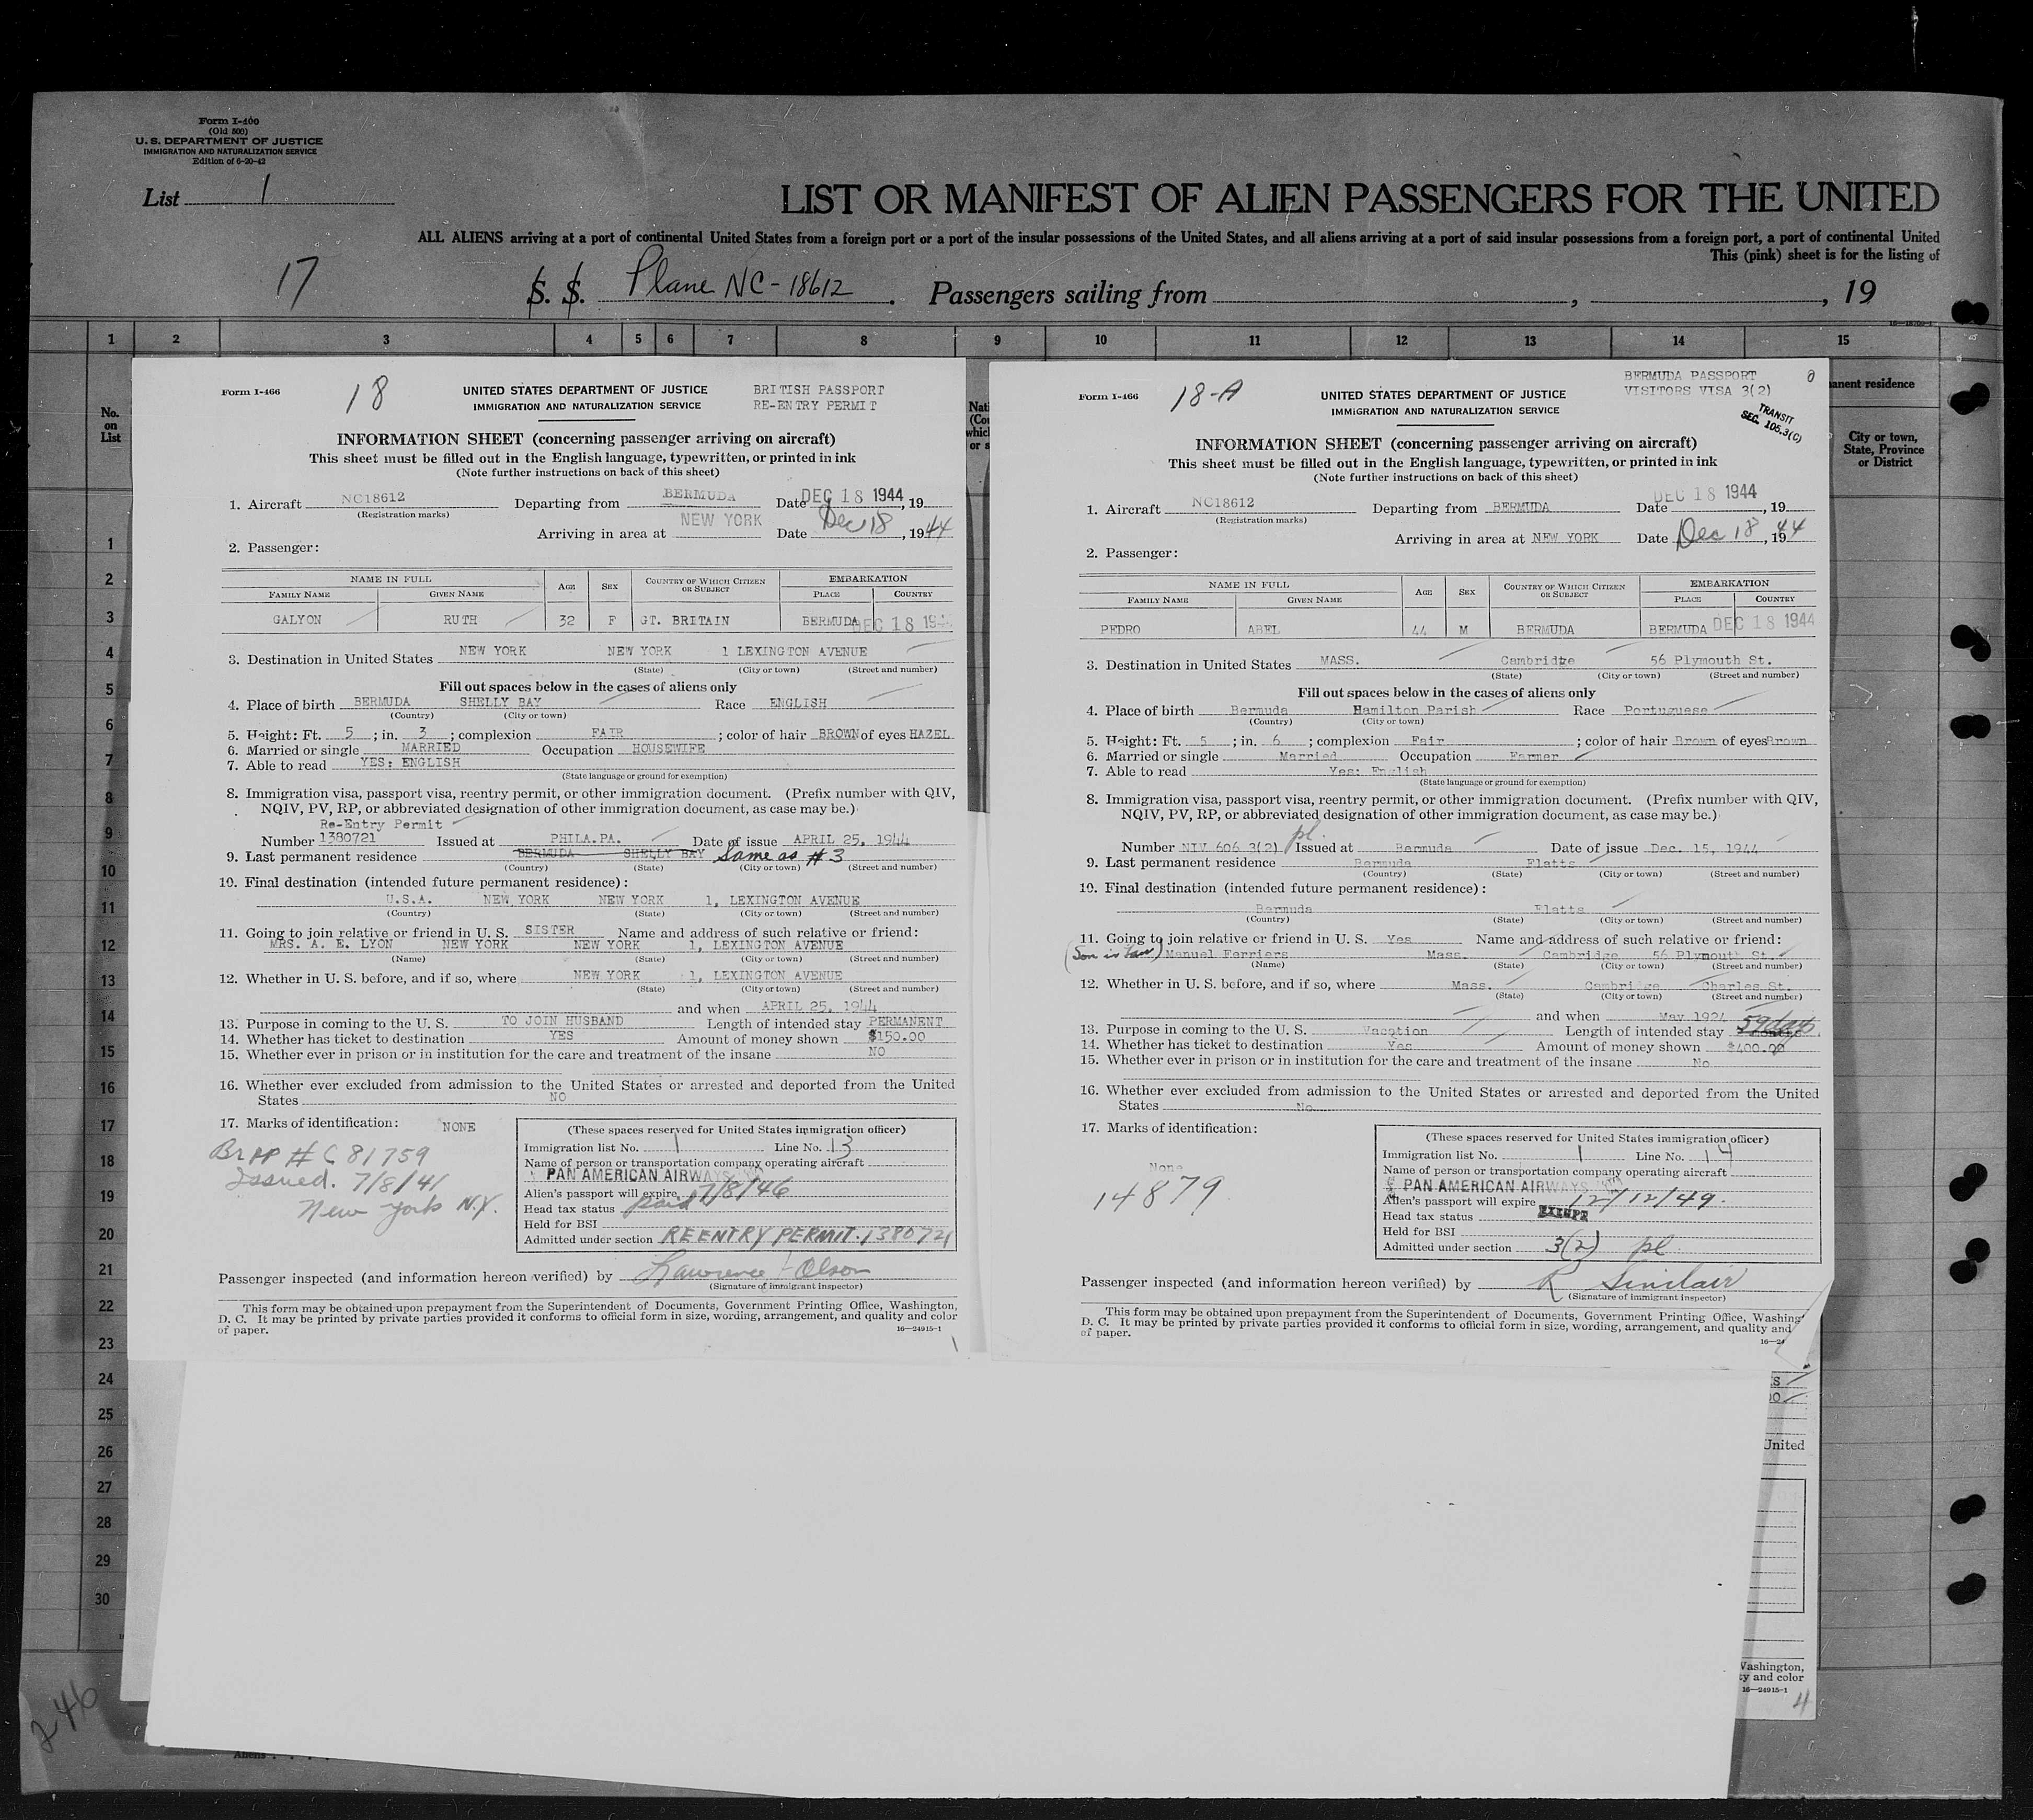 Form I-400
(Old 500)
U. S. DEPARTMENT OF JUSTICE
IMMIGRATION AND NATURALIZATION SERVICE
Edition of 6-20-42
List 1
LIST OR MANIFEST OF ALIEN PASSENGERS FOR THE UNITED
ALL ALIENS arriving at a port of continental United States from a foreign port or a port of the insular possessions of the United States, and all aliens arriving at a port of said insular possessions from a foreign port, a port of continental United
This (pink) sheet is for the listing of
17
S. S. Plane NC-18612. Passengers sailing from , , 19
1 2 3 4 5 6 7 8 9 10 11 12 13 14 15
No. on List
anent residence
City or town, State, Province or District
1
2
3
4
5
6
7
8
9
10
11
12
13
14
15
16
17
18
19
20
21
22
23
24
25
26
27
28
29
30
Form I-466
18
UNITED STATES DEPARTMENT OF JUSTICE
IMMIGRATION AND NATURALIZATION SERVICE
BRITISH PASSPORT
RE-ENTRY PERMIT
INFORMATION SHEET (concerning passenger arriving on aircraft)
This sheet must be filled out in the English language, typewritten, or printed in ink
(Note further instructions on back of this sheet)
1. Aircraft NC18612 Departing from BERMUDA Date DEC 18 1944, 19
(Registration marks)
Arriving in area at NEW YORK Date Dec 18, 1944
2. Passenger:
NAME IN FULL AGE SEX COUNTRY OF WHICH CITIZEN OR SUBJECT EMBARKATION
FAMILY NAME GIVEN NAME PLACE COUNTRY
GALYON RUTH 32 F GT. BRITAIN BERMUDA DEC 18 194
3. Destination in United States NEW YORK NEW YORK 1 LEXINGTON AVENUE
(State) (City or town) (Street and number)
Fill out spaces below in the cases of aliens only
4. Place of birth BERMUDA SHELLY BAY Race ENGLISH
(Country) (City or town)
5. Height: Ft. 5 ; in. 3 ; complexion FAIR ; color of hair BROWN of eyes HAZEL
6. Married or single MARRIED Occupation HOUSEWIFE
7. Able to read YES: ENGLISH
(State language or ground for exemption)
8. Immigration visa, passport visa, reentry permit, or other immigration document. (Prefix number with QIV,
NQIV, PV, RP, or abbreviated designation of other immigration document, as case may be.)
Re-Entry Permit
Number 1380721 Issued at PHILA.PA. Date of issue APRIL 25, 1944
9. Last permanent residence BERMUDA SHELLY BAY Same as #3
(Country) (State) (City or town) (Street and number)
10. Final destination (intended future permanent residence):
U.S.A. NEW YORK NEW YORK 1, LEXINGTON AVENUE
(Country) (State) (City or town) (Street and number)
11. Going to join relative or friend in U. S. SISTER Name and address of such relative or friend:
MRS. A. E. LYON NEW YORK NEW YORK 1, LEXINGTON AVENUE
(Name) (State) (City or town) (Street and number)
12. Whether in U. S. before, and if so, where NEW YORK 1, LEXINGTON AVENUE
(State) (City or town) (Street and number)
and when APRIL 25, 1944
13. Purpose in coming to the U. S. TO JOIN HUSBAND Length of intended stay PERMANENT
14. Whether has ticket to destination YES Amount of money shown $150.00
15. Whether ever in prison or in institution for the care and treatment of the insane NO
16. Whether ever excluded from admission to the United States or arrested and deported from the United
States NO
17. Marks of identification: NONE
Br PP # C 81759
Issued. 7/8/41
New York N.Y.
(These spaces reserved for United States immigration officer)
Immigration list No. 1 Line No. 13
Name of person or transportation company operating aircraft
PAN AMERICAN AIRWAYS
Alien's passport will expire 7/8/46
Head tax status paid
Held for BSI
Admitted under section REENTRY PERMIT. 1380721
Passenger inspected (and information hereon verified) by Lawrence Olson
(Signature of immigrant inspector)
This form may be obtained upon prepayment from the Superintendent of Documents, Government Printing Office, Washington,
D. C. It may be printed by private parties provided it conforms to official form in size, wording, arrangement, and quality and color
of paper.
16—24915-1
Form I-466
18-A
UNITED STATES DEPARTMENT OF JUSTICE
IMMIGRATION AND NATURALIZATION SERVICE
BERMUDA PASSPORT
VISITORS VISA 3(2)
TRANSIT
SEC. 105.3(C)
INFORMATION SHEET (concerning passenger arriving on aircraft)
This sheet must be filled out in the English language, typewritten, or printed in ink
(Note further instructions on back of this sheet)
1. Aircraft NC18612 Departing from BERMUDA Date DEC 18 1944, 19
(Registration marks)
Arriving in area at NEW YORK Date Dec 18, 1944
2. Passenger:
NAME IN FULL AGE SEX COUNTRY OF WHICH CITIZEN OR SUBJECT EMBARKATION
FAMILY NAME GIVEN NAME PLACE COUNTRY
PEDRO ABEL 44 M BERMUDA BERMUDA DEC 18 1944
3. Destination in United States MASS. Cambridge 56 Plymouth St.
(State) (City or town) (Street and number)
Fill out spaces below in the cases of aliens only
4. Place of birth Bermuda Hamilton Parish Race Portuguese
(Country) (City or town)
5. Height: Ft. 5 ; in. 6 ; complexion Fair ; color of hair Brown of eyes Brown
6. Married or single Married Occupation Farmer
7. Able to read Yes: English
(State language or ground for exemption)
8. Immigration visa, passport visa, reentry permit, or other immigration document. (Prefix number with QIV,
NQIV, PV, RP, or abbreviated designation of other immigration document, as case may be.)
pl.
Number NIV 606 3(2) Issued at Bermuda Date of issue Dec. 15, 1944
9. Last permanent residence Bermuda Flatts
(Country) (State) (City or town) (Street and number)
10. Final destination (intended future permanent residence):
Bermuda Flatts
(Country) (State) (City or town) (Street and number)
11. Going to join relative or friend in U. S. Yes Name and address of such relative or friend:
(Son in law) Manuel Ferriers Mass. Cambridge 56 Plymouth St.
(Name) (State) (City or town) (Street and number)
12. Whether in U. S. before, and if so, where Mass. Cambridge Charles St.
(State) (City or town) (Street and number)
and when May 1924
13. Purpose in coming to the U. S. Vacation Length of intended stay 59 days
14. Whether has ticket to destination Yes Amount of money shown $400.00
15. Whether ever in prison or in institution for the care and treatment of the insane No
16. Whether ever excluded from admission to the United States or arrested and deported from the United
States No
17. Marks of identification:
None
14879
(These spaces reserved for United States immigration officer)
Immigration list No. 1 Line No. 14
Name of person or transportation company operating aircraft
PAN AMERICAN AIRWAYS
Alien's passport will expire 12/12/49.
Head tax status EXEMPT
Held for BSI
Admitted under section 3(2) pl
Passenger inspected (and information hereon verified) by R Sinclair
(Signature of immigrant inspector)
This form may be obtained upon prepayment from the Superintendent of Documents, Government Printing Office, Washing
D. C. It may be printed by private parties provided it conforms to official form in size, wording, arrangement, and quality and
of paper.
16—24
United
Washington,
ty and color
16—24915-1
4
246
Aliens